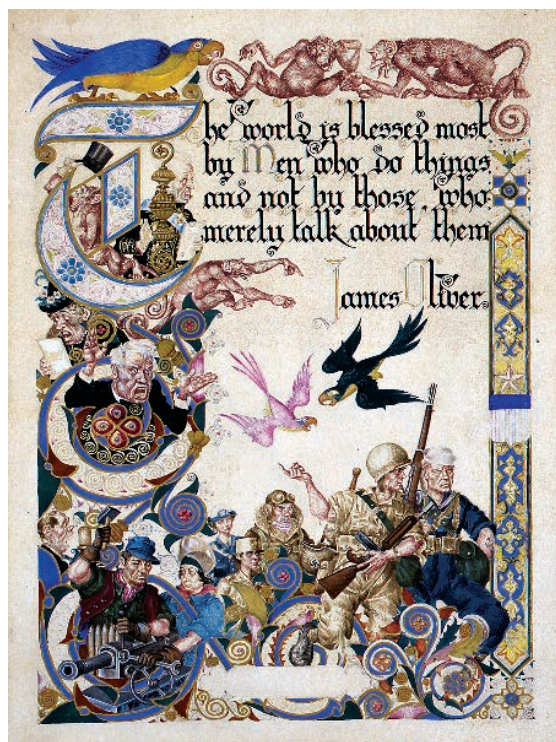 The world is blessed most
by Men who do things
and not by those, who
merely talk about them
James Oliver.